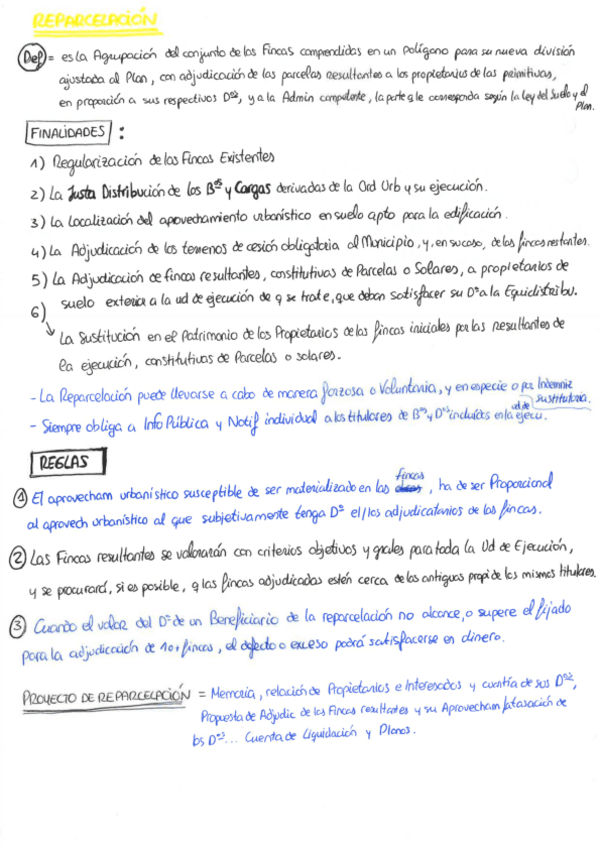 REPARCELACIÓN
Def = es la Agrupación del conjunto de las Fincas comprendidas en un Polígono para su nueva división
ajustada al Plan, con adjudicación de las parcelas resultantes a los propietarios de las primitivas,
en proporción a sus respectivos Dºˢ, y a la Admin competente, la parte q le corresponda según la Ley del Suelo y el
Plan.
FINALIDADES :
1) Regularización de las Fincas Existentes
2) La Justa Distribución de los Bºˢ y Cargas derivadas de la Ord Urb y su ejecución.
3) La localización del aprovechamiento urbanístico en suelo apto para la edificación.
4) La Adjudicación de los terrenos de cesión obligatoria al Municipio, y, en su caso, de las fincas restantes.
5) La Adjudicación de fincas resultantes, constitutivas de Parcelas o Solares, a propietarios de
suelo exterior a la ud de ejecución de q se trate, que deban satisfacer su Dº a la Equidistribu.
6)
La Sustitución en el Patrimonio de los Propietarios de las fincas iniciales por las resultantes de
la ejecución, constitutivas de Parcelas o solares.
- La Reparcelación puede llevarse a cabo de manera forzosa o Voluntaria, y en especie o por Indemniz
sustitutoria.
- Siempre obliga a Info Pública y Notif individual a los titulares de Bºˢ y Dºˢ incluídos en la ud de ejecu.
REGLAS
① El aprovecham urbanístico susceptible de ser materializado en las fincas, ha de ser Proporcional
al aprovech urbanístico al que subjetivamente tenga Dº el/los adjudicatarios de las fincas.
② Las Fincas resultantes se valorarán con criterios objetivos y grales para toda la Ud de Ejecución,
y se procurará, si es posible, q las fincas adjudicadas estén cerca de las antiguas propi de los mismos titulares.
③ Cuando el valor del Dº de un Beneficiario de la reparcelación no alcance, o supere el fijado
para la adjudicación de 1 o + fincas, el defecto o exceso podrá satisfacerse en dinero.
PROYECTO DE REPARCELACIÓN = Memoria, relación de Propietarios e Interesados y cuantía de sus Dºˢ,
Propuesta de Adjudic de las Fincas resultantes y su Aprovecham, tasación de
los Dºˢ... Cuenta de Liquidación y Planos.